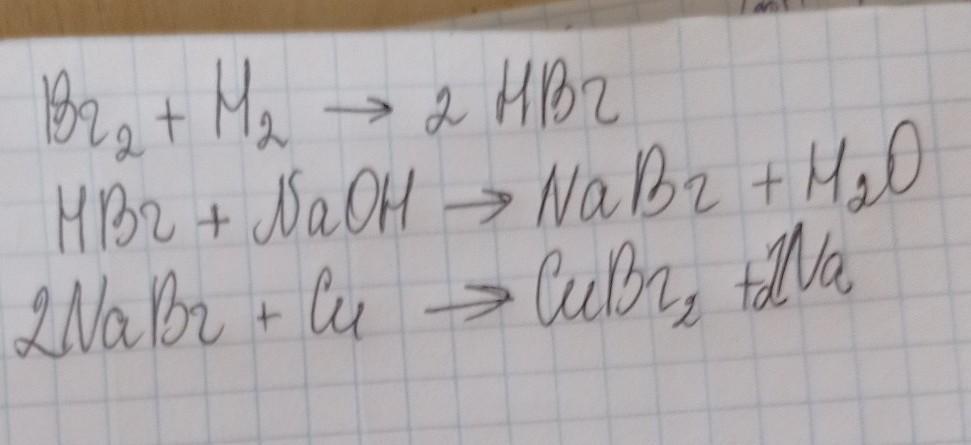 Br₂ + H₂ → 2 HBr
HBr + NaOH → NaBr + H₂O
2NaBr + Cu → CuBr₂ + 2Na